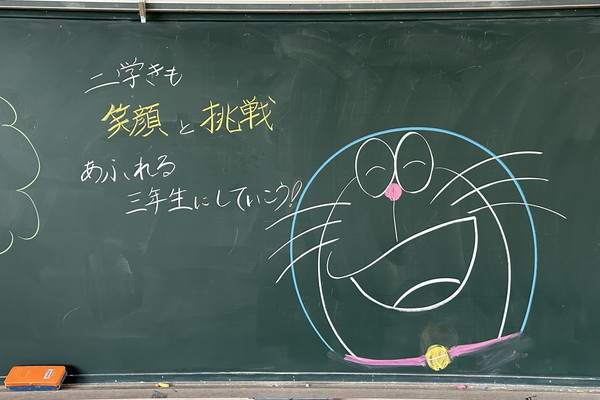 二学きも
笑顔と挑戦
あふれる
三年生にしていこう!